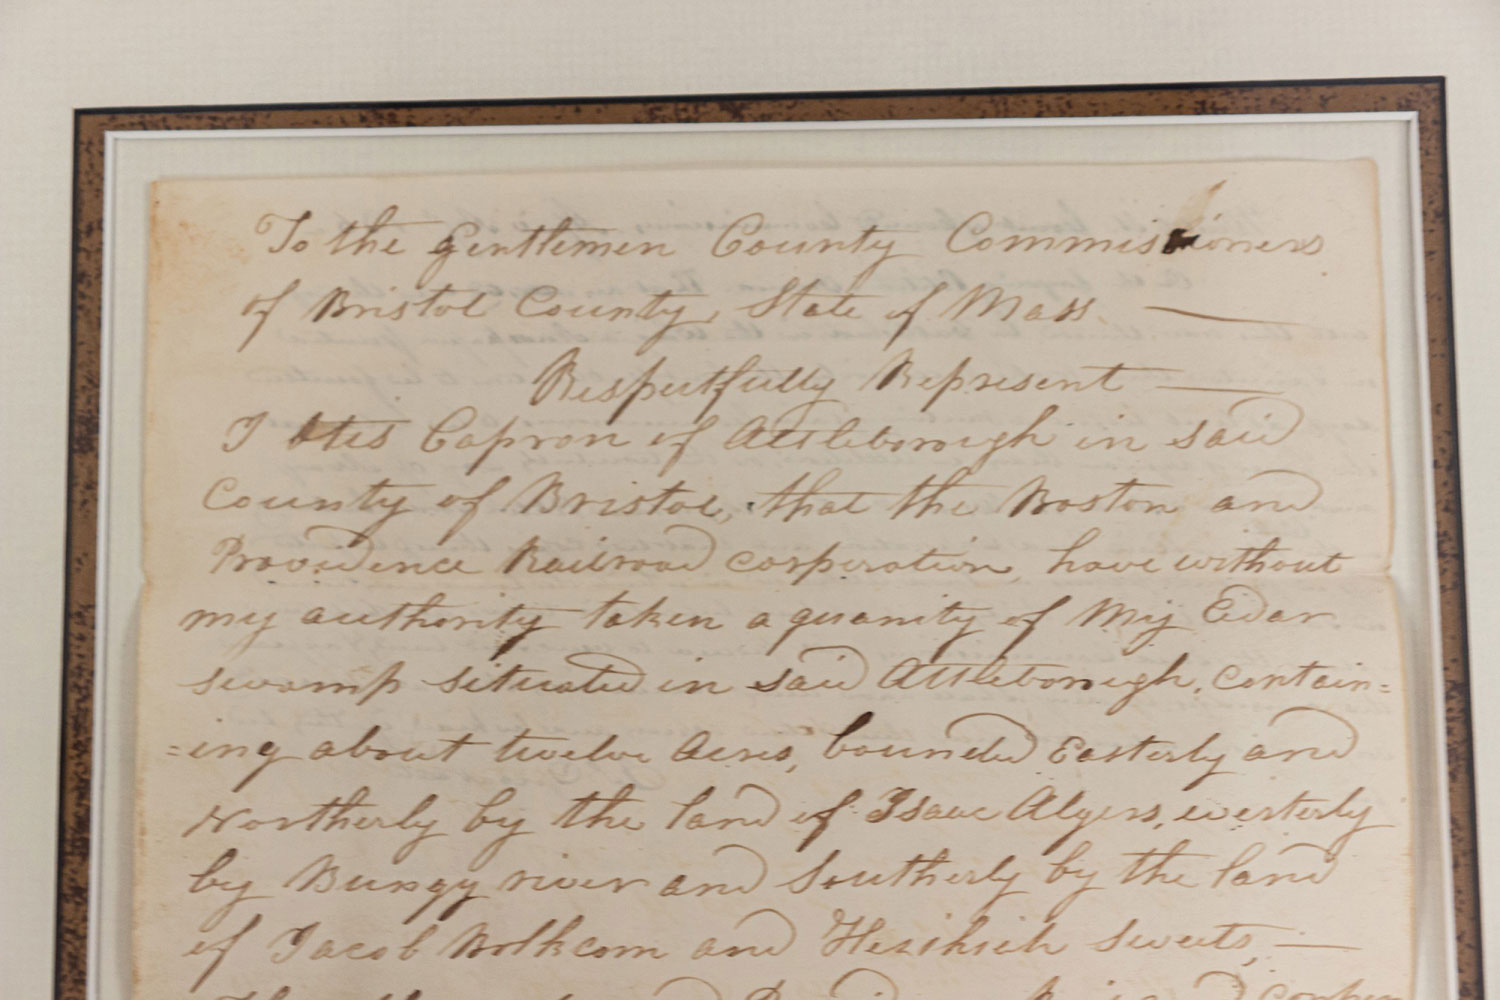 To the Gentlemen County Commissioners
of Bristol County, State of Mass.
Respectfully Represent
I Otis Capron of Attleborough in said
County of Bristol, that the Boston and
Providence Railroad corporation, have without
my authority taken a quanity of My Cedar
swamp situated in said Attleborough, contain=
=ing about twelve Acres, bounded Easterly and
Northerly by the land of Isaac Algers, westerly
by Bungy river and Southerly by the land
of Jacob Bolkcom and Hezikiah Sweets,